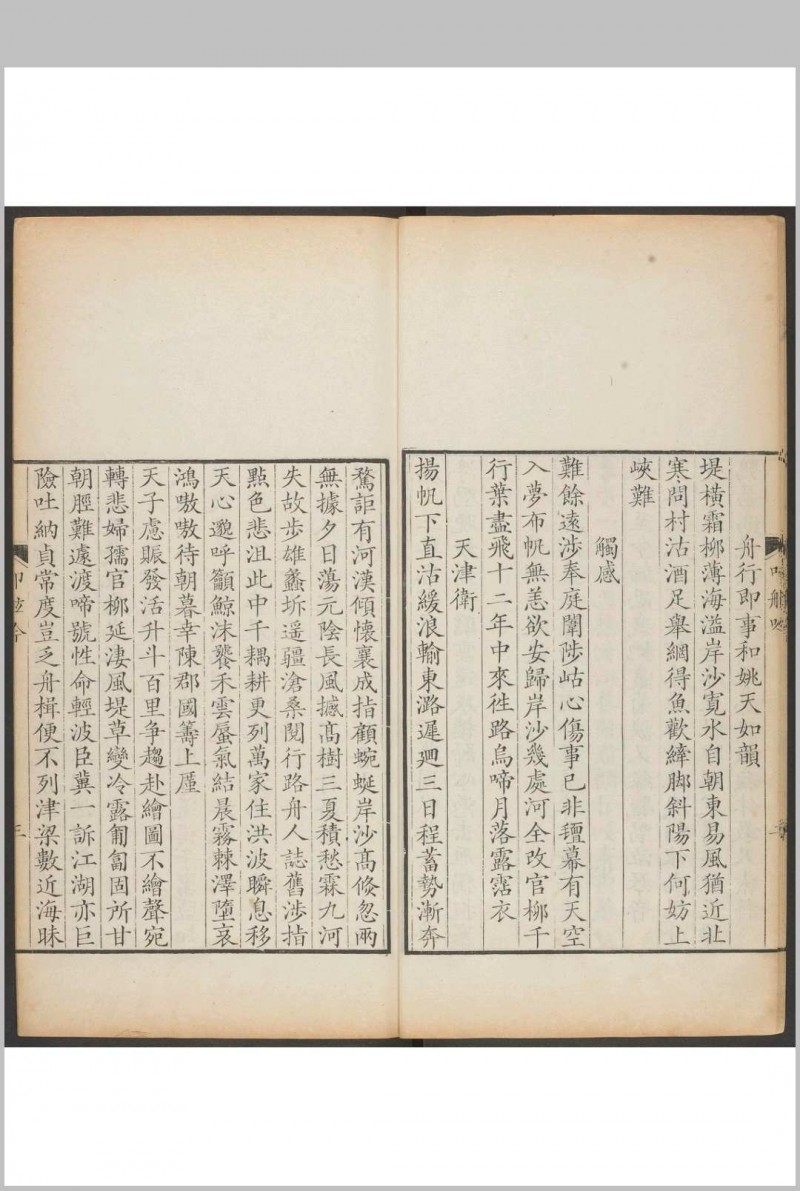 舟行即事和姚天如韻
堤橫霜柳薄海溢岸沙寬水自朝東易風猶近北
寒問村沽酒足舉網得魚歡緯脚斜陽下何妨上
峽難
觸感
難餘遠涉奉庭闈陟岵心傷事已非氊幕有天空
入夢布帆無恙欲安歸岸沙幾處河全改官柳千
行葉盡飛十二年中來徃路烏啼月落露霑衣
天津衛
揚帆下直沽緩浪輸東潞遲迴三日程蓄勢漸奔
騖詎有河漢傾懷襄成指顧蜿蜒岸沙髙倐忽兩
無據夕日蕩元陰長風撼髙樹三夏積愁霖九河
失故步雄蠡坼遥疆滄桑閱行路舟人誌舊涉指
點色悲沮此中千耦耕更列萬家住洪波瞬息移
天心邈呼籲鯨沫饕禾雲蜃氣結晨霧棘澤墮哀
鴻嗷嗷待朝暮幸陳郡國籌上厪
天子慮賑發活升斗百里争趨赴繪圖不繪聲宛
轉悲婦孺官柳延淒風堤草變冷露匍匐固所甘
朝脛難遽渡啼號性命輕波臣冀一訴江湖亦巨
險吐納貞常度豈乏舟楫便不列津梁數近海昧
三